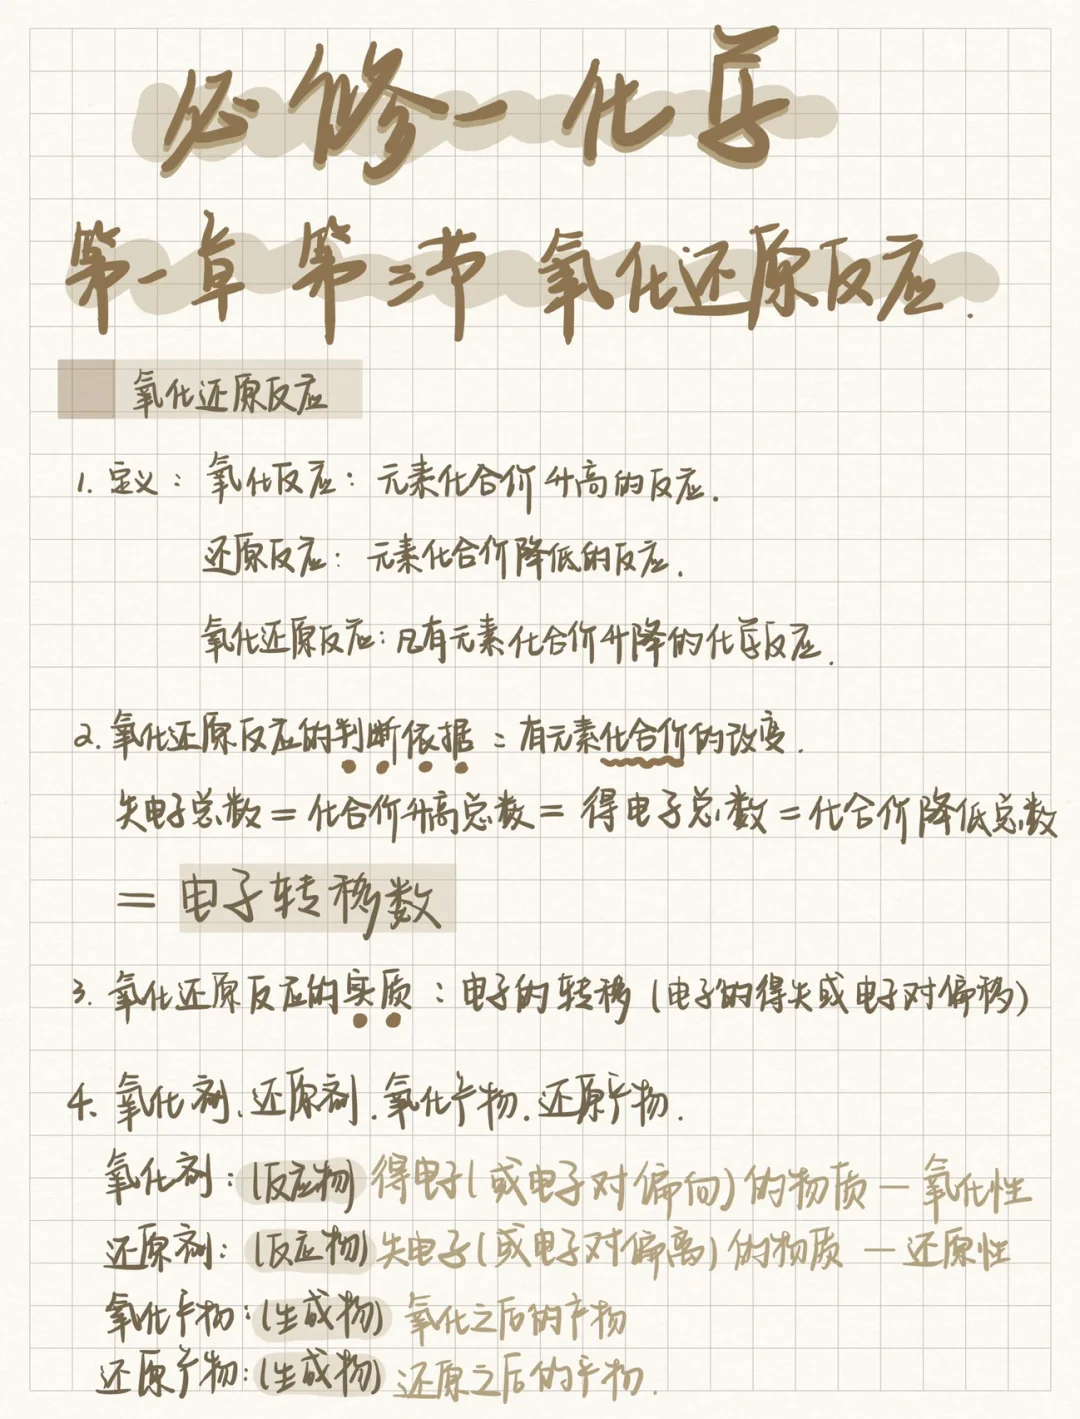 必修一 化学
第一章 第三节 氧化还原反应.
氧化还原反应
1. 定义: 氧化反应: 元素化合价升高的反应.
还原反应: 元素化合价降低的反应.
氧化还原反应: 凡有元素化合价升降的化学反应.
2. 氧化还原反应的判断依据: 有元素化合价的改变.
失电子总数 = 化合价升高总数 = 得电子总数 = 化合价降低总数
= 电子转移数
3. 氧化还原反应的实质: 电子的转移 (电子的得失或电子对偏移)
4. 氧化剂、还原剂.氧化产物.还原产物.
氧化剂: (反应物) 得电子(或电子对偏向)的物质 — 氧化性
还原剂: (反应物) 失电子(或电子对偏离)的物质 — 还原性
氧化产物: (生成物) 氧化之后的产物
还原产物: (生成物) 还原之后的产物.